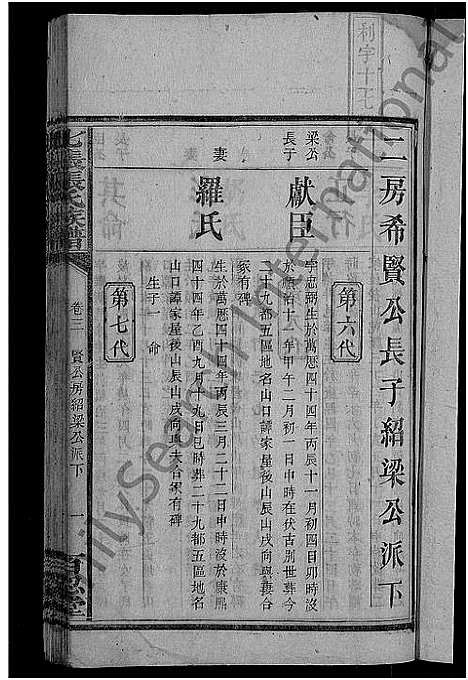 利字十七
二房希賢公長子紹梁公派下
第六代
梁公長子
獻臣
字忠弼生於萬厯四十四年丙辰十一月初四日卯時沒
於順治十一年甲午二月初一日申時在伏古別世葬今
二十九都五區地名山口譚家屋後山辰山戌向與妻合
冢有碑
妻
羅氏
生於萬厯四十四年丙辰三月二十二日申時沒於康熙
四十四年乙酉九月十九日巳時葬二十九都五區地名
山口譚家屋後山辰山戌向與夫合冢有碑
生子一 命
第七代
張氏族譜
卷三
賢公房紹梁公派下
一
百忍堂
其命
FamilySearch International